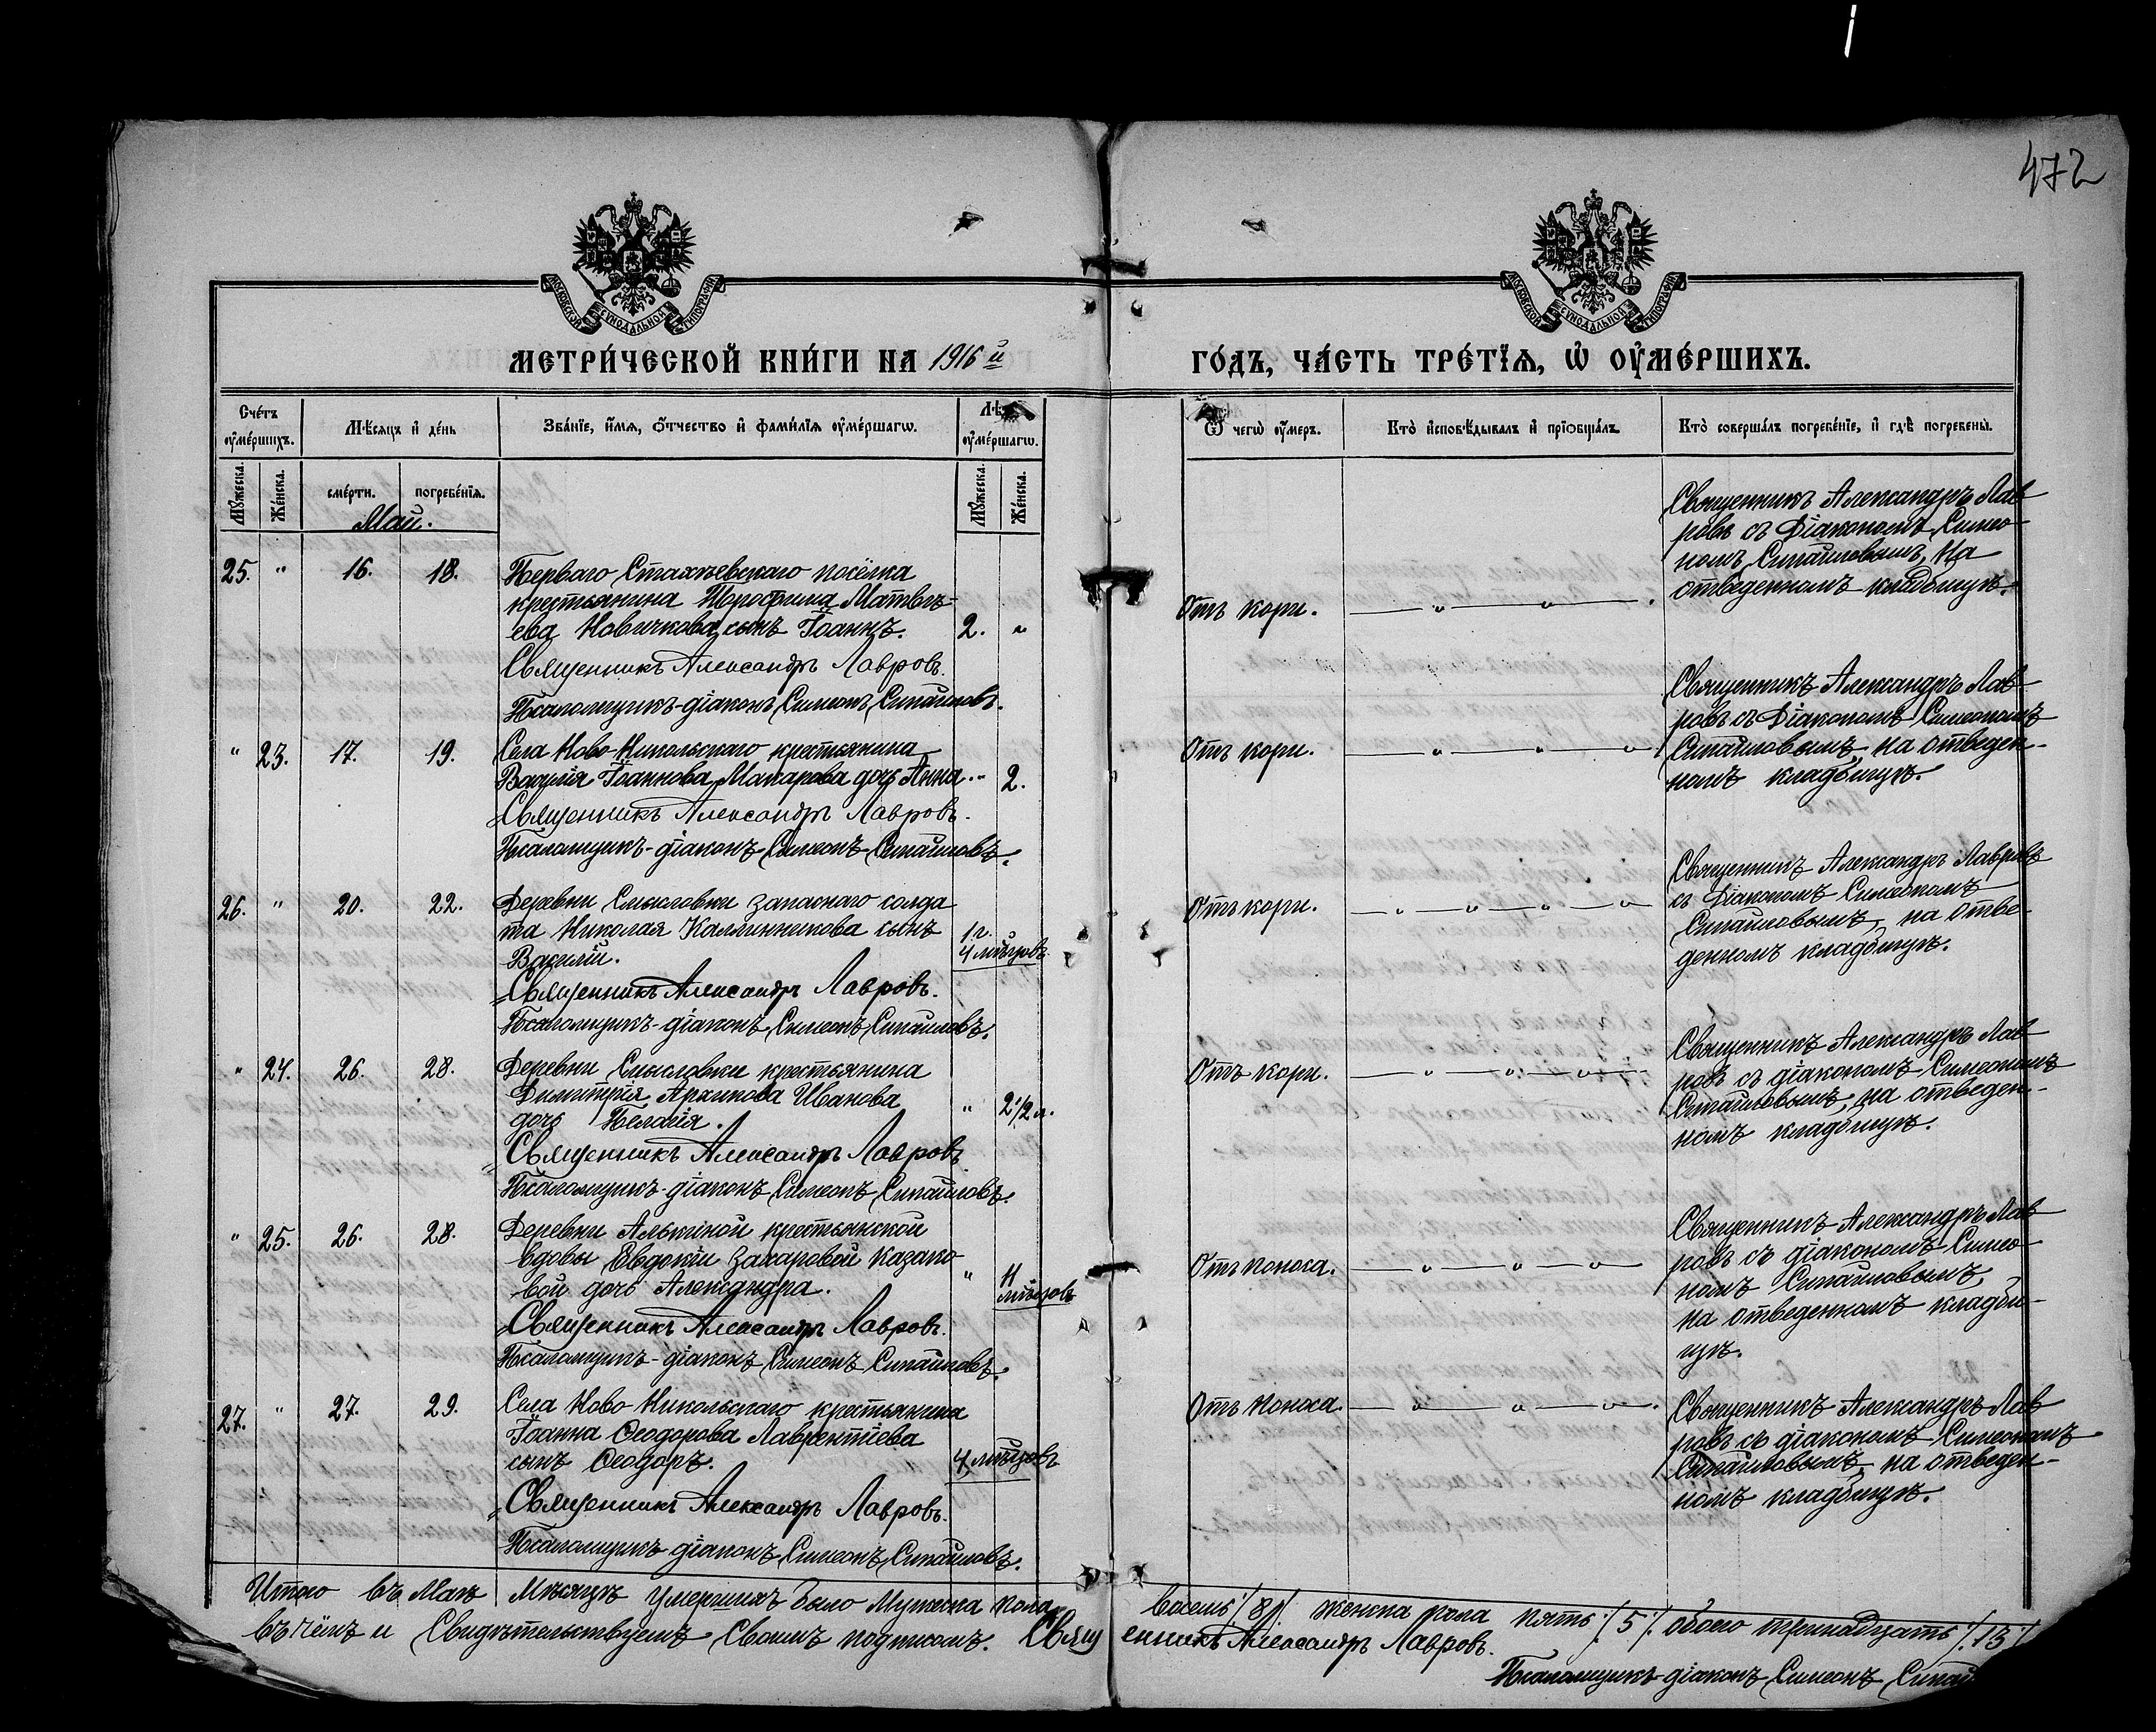 472
МОСКОВСКОЙ СѴНОДАЛЬНОЙ ТИПОГРАФІИ
МОСКОВСКОЙ СѴНОДАЛЬНОЙ ТИПОГРАФІИ
МЕТРИ́ЧЕСКОЙ КНИ́ГИ НА 1916й ГО́ДЪ, ЧА́СТЬ ТРЕ́ТЇѦ, Ѡ҆ ОУ҆МЕ́РШИХЪ.
Сче́тъ оу҆ме́ршихъ.
Мѣ́сяцъ и҆ де́нь
Зва́нїе, и҆́мѧ, ѻ҆́тчество и҆ фами́лїѧ оу҆ме́ршагѡ.
оу҆ме́ршагѡ.
Ѿ чегѡ̀ оу҆́меръ.
Кто̀ и҆сповѣ́дывалъ и҆ прїѡбща́лъ.
Кто̀ соверша́лъ погребе́нїе, и҆ гдѣ̀ погребены̀.
Мꙋ́жеска.
Же́нска.
сме́рти.
погребе́нїѧ.
Мꙋ́жеска.
Же́нска.
Май.
25. " 16. 18. Перваго Стахѣевскаго посёлка
крестьянина Матвѣ-
ева Новичкова сынъ Іоаннъ. 2. "
Священникъ Александръ Лавровъ.
Псаломщикъ-діаконъ Симеонъ Сипайловъ.
Отъ кори. — " — " — .
Священникъ Александръ Лав
ровъ съ Діакономъ Симео
номъ Сипайловымъ, на
отведенномъ кладбищѣ.
" 23. 17. 19. Села Ново-Никольскаго крестьянина
Василія Іоаннова Макарова дочь Анна. " 2.
Священникъ Александръ Лавровъ.
Псаломщикъ-діаконъ Симеонъ Сипайловъ.
Отъ кори. — " — " — "
Священникъ Александръ Лав
ровъ съ Діакономъ Симеономъ
Сипайловымъ, на отведен-
номъ кладбищѣ.
26. " 20. 22. Деревни Смысловки запаснаго солда
та Николая Калминникова сынъ
Василій. 1 г. 4 мѣсяцовъ
Священникъ Александръ Лавровъ.
Псаломщикъ-діаконъ Симеонъ Сипайловъ.
Отъ кори. — " — " — " — "
Священникъ Александръ Лавровъ
съ Діакономъ Симеономъ
Сипайловымъ, на отве-
денномъ кладбищѣ.
" 24. 26. 28. Деревни Смысловки крестьянина
Димитрія Иванова
дочь Пелагія. " 2 1/2 г.
Священникъ Александръ Лавровъ
Псаломщикъ-діаконъ Симеонъ Сипайловъ.
Отъ кори. — " — " — "
Священникъ Александръ Лав
ровъ съ діакономъ Симеономъ
Сипайловымъ, на отведен-
номъ кладбищѣ.
" 25. 26. 28. Деревни крестьянской
вдовы Евдокіи Захаровой Казако
вой дочь Александра. " 11 мѣсяцовъ
Священникъ Александръ Лавровъ.
Псаломщикъ-діаконъ Симеонъ Сипайловъ.
Отъ поноса. — " — " — "
Священникъ Александръ Лав
ровъ съ діакономъ Симео
номъ Сипайловымъ,
на отведенномъ кладби-
щѣ.
27. " 27. 29. Села Ново Никольскаго крестьянина
Іоанна Ѳеодорова Лаврентіева
сынъ Ѳеодоръ. 4 мѣсяцовъ
Священникъ Александръ Лавровъ.
Псаломщикъ діаконъ Симеонъ Сипайловъ.
Отъ поноса. — " — " — .
Священникъ Александръ Лав
ровъ съ діакономъ Симеономъ
Сипайловымъ, на отведен-
номъ кладбищѣ.
Итого въ Маѣ Мѣсяцѣ умершихъ было Мужеска пола восемь ./.8./. женска пола пять ./.5./. обоего тринадцать ./.13./.
въ чёмъ и Свидѣтельствуемъ Своимъ подписомъ. Священникъ Александръ Лавровъ.
Псаломщикъ-діаконъ Симеонъ